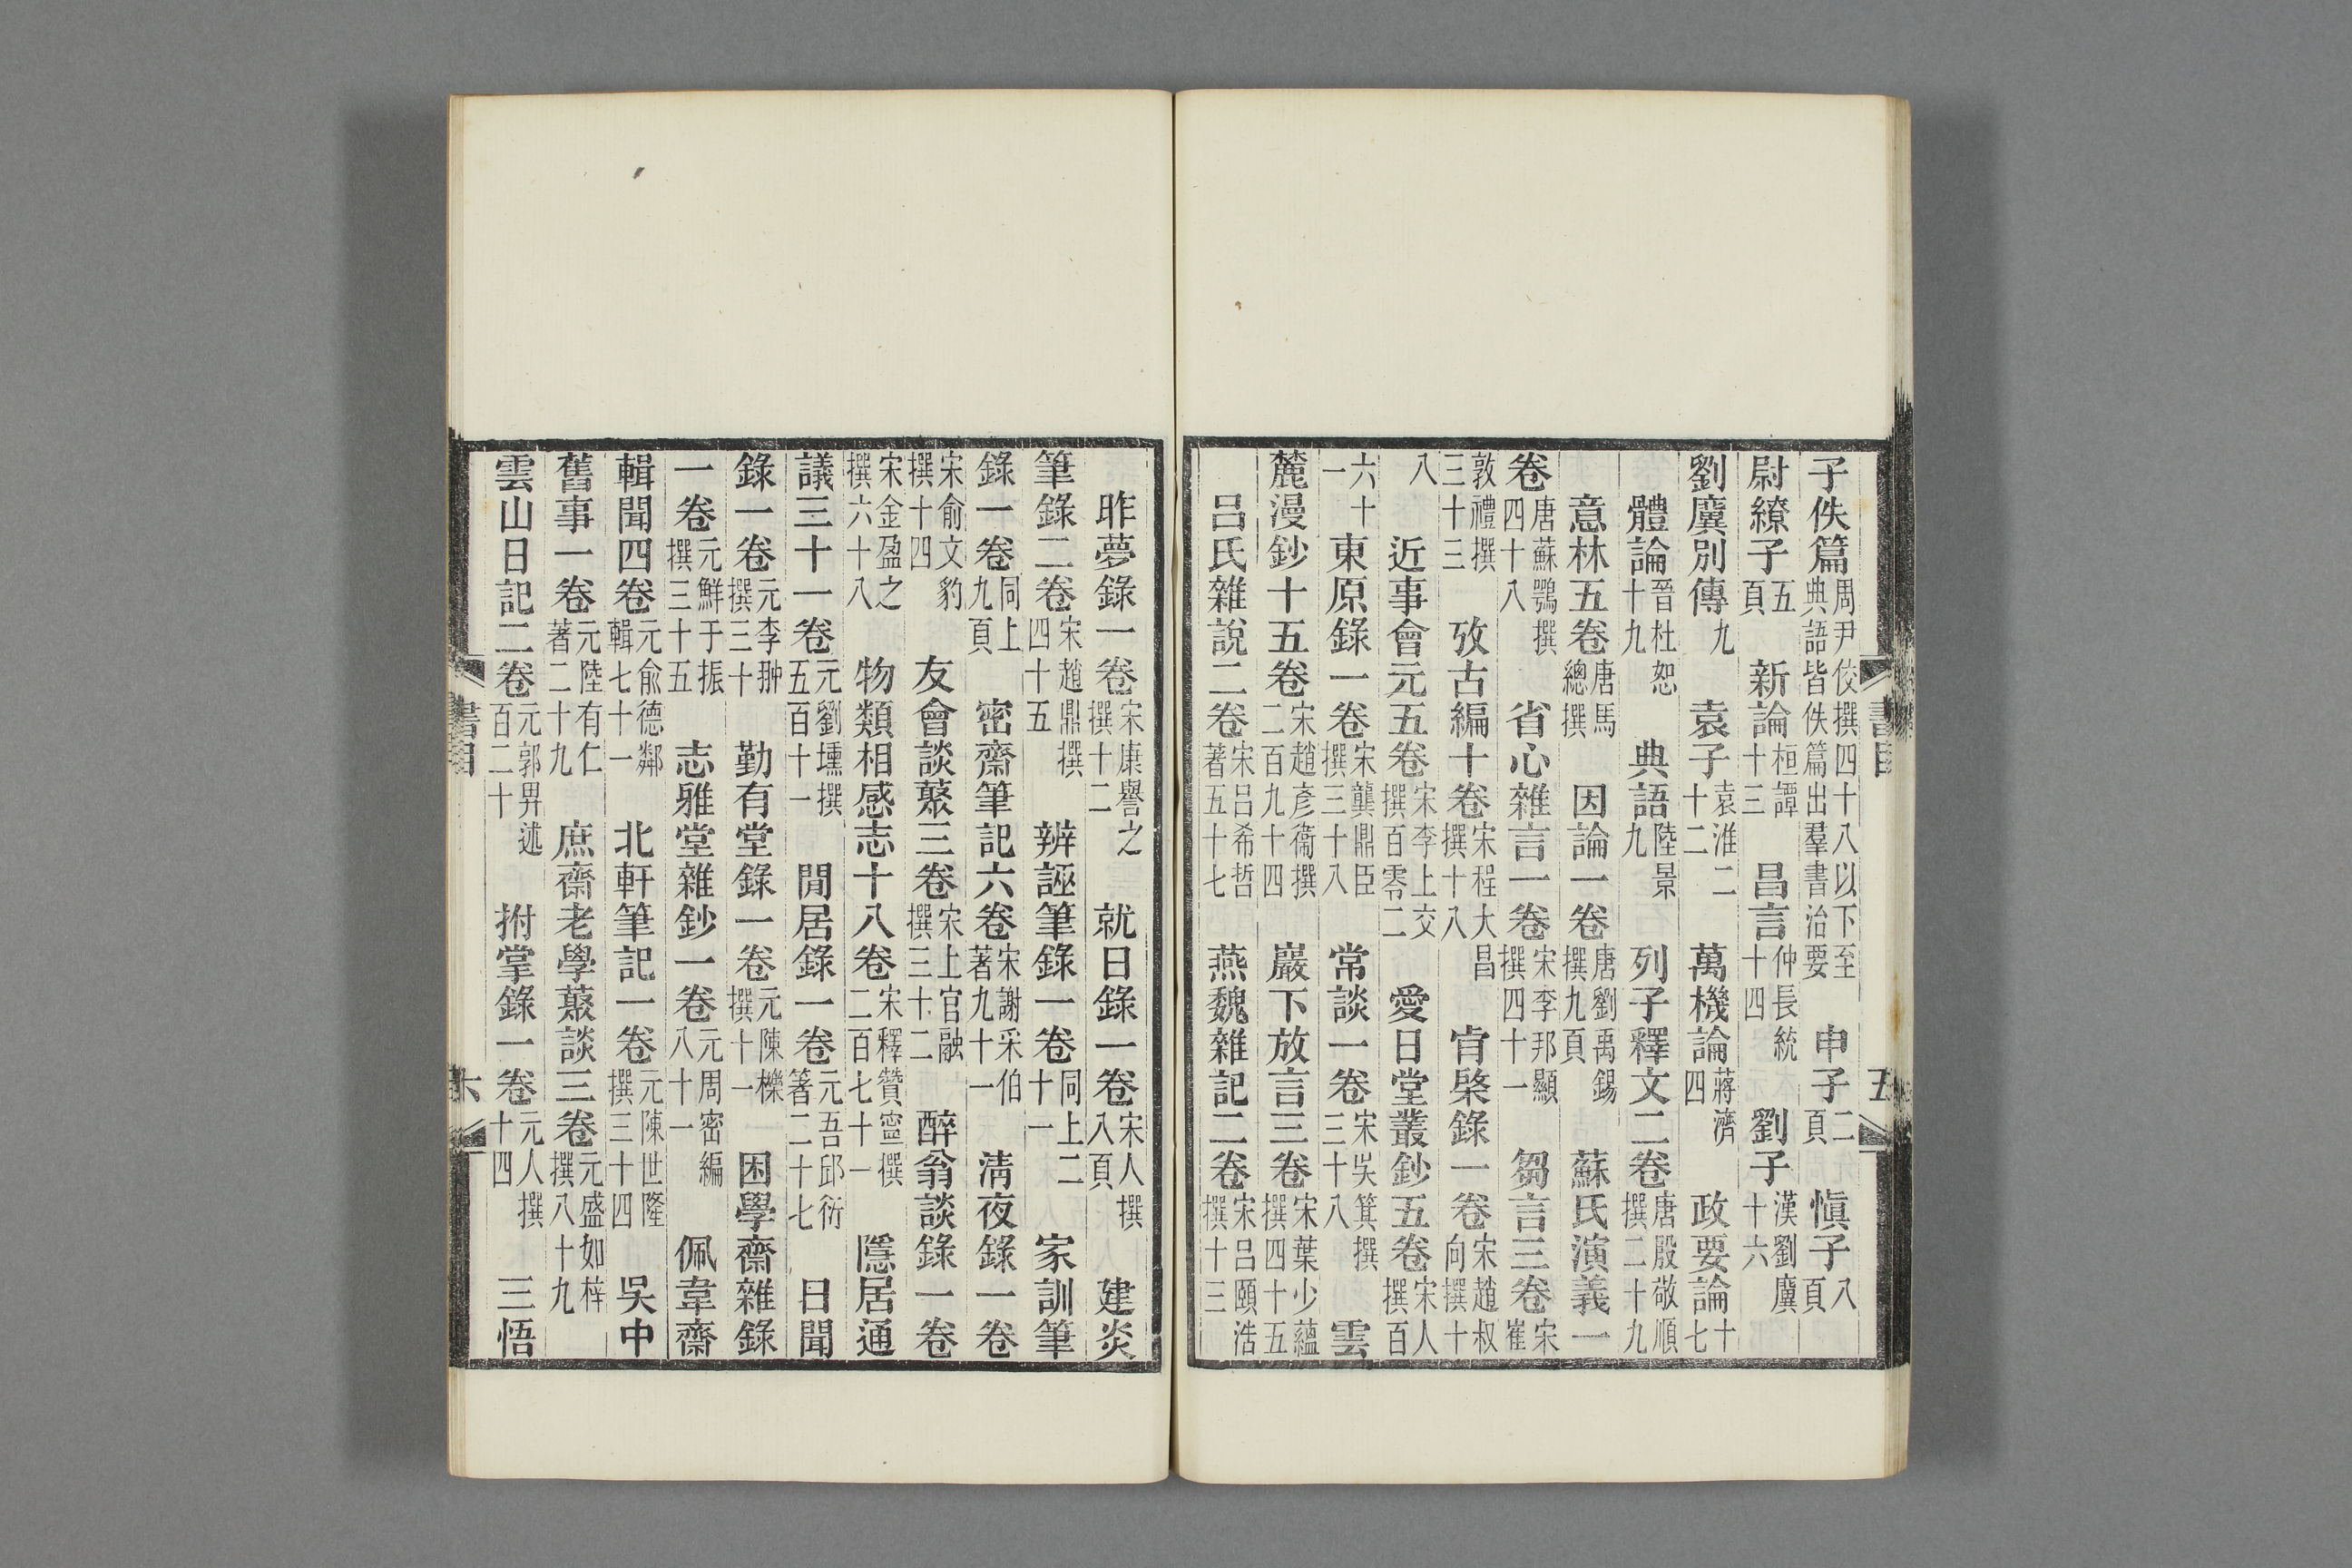 子佚篇周尹佼撰四十八以下至典語皆佚篇出羣書治要　申子二頁　慎子八頁
尉繚子五頁　新論桓譚十三　昌言仲長統十四　劉子漢劉廙十六
劉廙別傳九　袁子袁淮二十二　萬機論蔣濟四　政要論十七
體論晉杜恕十九　典語陸景九　列子釋文二卷唐殷敬順撰二十九
意林五卷唐馬總撰　因論一卷唐劉禹錫撰九頁　蘇氏演義一
卷唐蘇鶚撰四十八　省心雜言一卷宋李邦顯撰四十一　芻言三卷宋崔
敦禮撰三十三　攷古編十卷宋程大昌撰十八　肯綮錄一卷宋趙叔向撰十
八　近事會元五卷宋李上交撰百零二　愛日堂叢鈔五卷宋人撰百
六十一　東原錄一卷宋龔鼎臣撰三十八　常談一卷宋吳箕撰三十八　雲
麓漫鈔十五卷宋趙彥衞撰二百九十四　巖下放言三卷宋葉少蘊撰四十五
呂氏雜說二卷宋呂希哲著五十七　燕魏雜記二卷宋呂頤浩撰十三
書目　五
昨夢錄一卷宋康譽之撰十二　就日錄一卷宋人撰八頁　建炎
筆錄二卷宋趙鼎撰四十五　辨誣筆錄一卷同上二十一　家訓筆
錄一卷同上九頁　密齋筆記六卷宋謝采伯著九十一　清夜錄一卷
宋俞文豹撰十四　友會談藂三卷宋上官融撰三十二　醉翁談錄一卷
宋金盈之撰六十八　物類相感志十八卷宋釋贊寧撰二百七十一　隱居通
議三十一卷元劉壎撰五百十一　閒居錄一卷元吾邱衍箸二十七　日聞
錄一卷元李翀撰三十　勤有堂錄一卷元陳櫟撰十一　困學齋雜錄
一卷元鮮于振撰三十五　志雅堂雜鈔一卷元周密編八十一　佩韋齋
輯聞四卷元兪德鄰輯七十一　北軒筆記一卷元陳世隆撰三十四　吳中
舊事一卷元陸有仁著二十九　庶齋老學藂談三卷元盛如梓撰八十九
雲山日記二卷元郭畀述百二十　拊掌錄一卷元人撰十四　三悟
書目　六